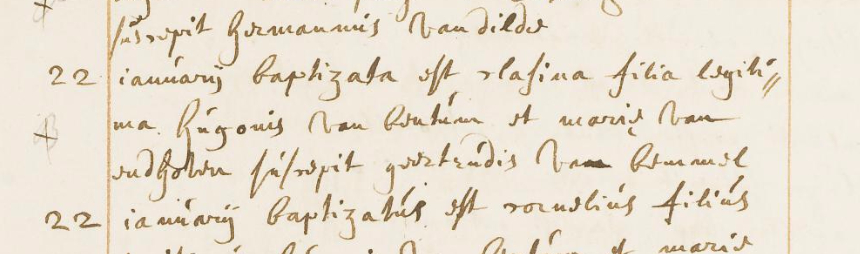 suscepit Hermannus van dilde
22 ianuarij baptizata est clasina filia legiti//
ma Hugonis van bentum et marię van
endhoven suscepit geertrudis van bemmel
22 ianuarij baptizatus est cornelius filius
et marię